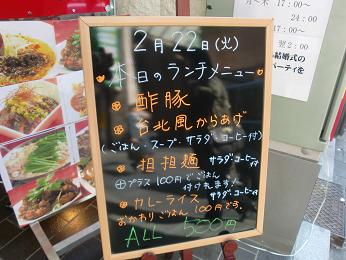 2月22日(火)
本日のランチメニュー
酢豚
台北風からあげ
(ごはん・スープ・サラダ・コーヒー付)
担担麺 サラダ・コーヒー付
⊕プラス100円でごはん
付けれます!
カレーライス サラダ・コーヒー付
おかわりごはん100円です。
ALL 500円
月～木 17:00
24:00
17:00
翌2:00
結婚式の
パーティを